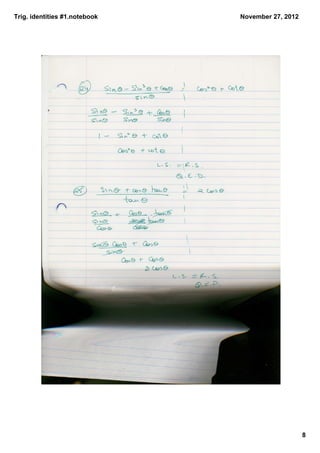 Trig. identities #1.notebook November 27, 2012
24 Sinθ - Sin³θ + Cosθ / sinθ = Cos²θ + Cotθ
Sinθ/sinθ - Sin³θ/Sinθ + Cosθ/Sinθ
1 - Sin²θ + cotθ
Cos²θ + cotθ
L.S. = R.S.
Q.E.D.
25 Sinθ + cosθ tanθ / tanθ = 2 cosθ
Cosθ tanθ
Sinθ Cosθ / Sinθ + Cosθ
Cosθ + Cosθ
2 cosθ
L.S = R.S
Q.E.D.
8